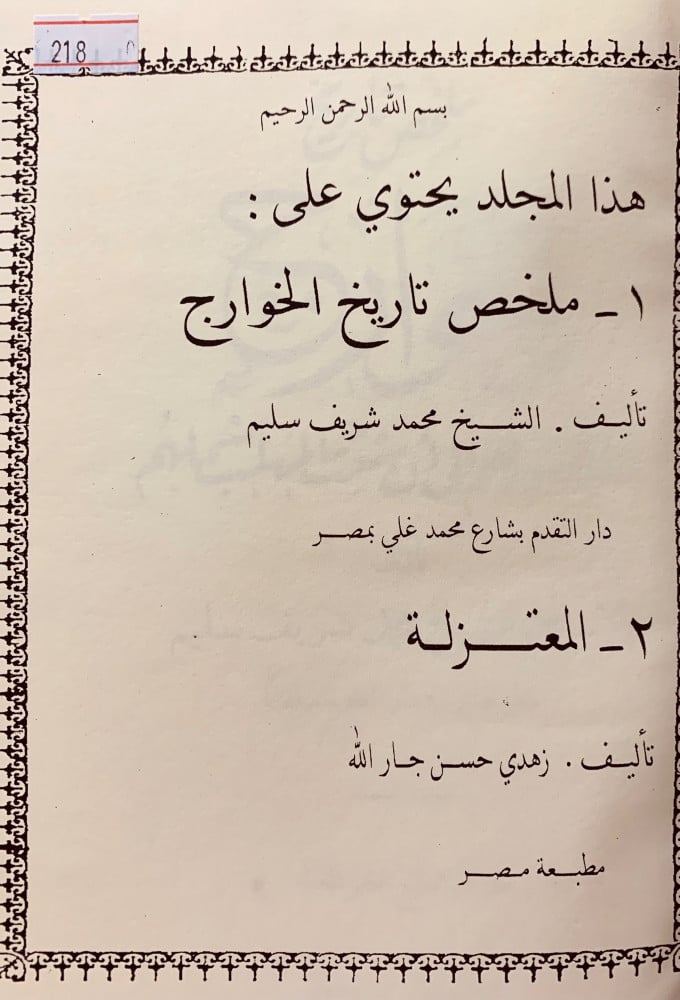 218
بسم الله الرحمن الرحيم
هذا المجلد يحتوي على :
١ ـ ملخص تاريخ الخوارج
تأليف . الشيخ محمد شريف سليم
دار التقدم بشارع محمد غلي بمصر
٢ ـ المعتزلة
تأليف . زهدي حسن جار الله
مطبعة مصر